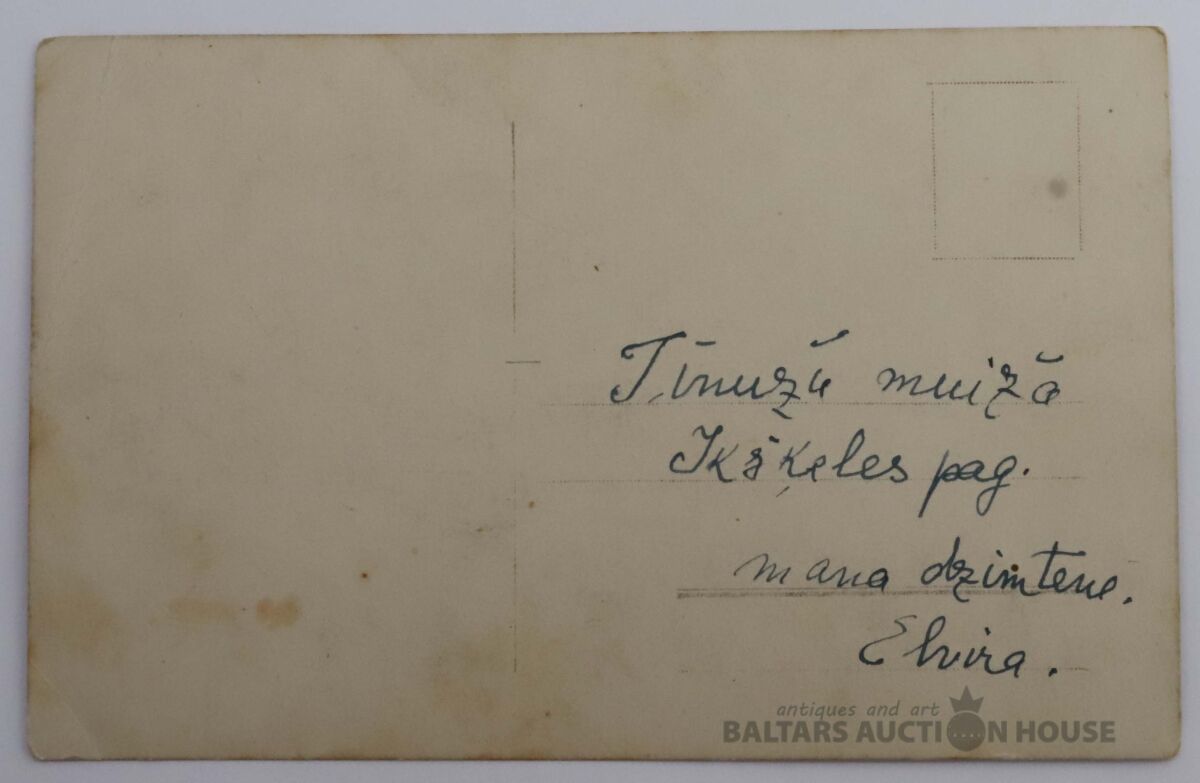 Tīnužu muiža
Ikšķeles pag.
mana dzimtene.
Elvira.
antiques and art
BALTARS AUCTION HOUSE